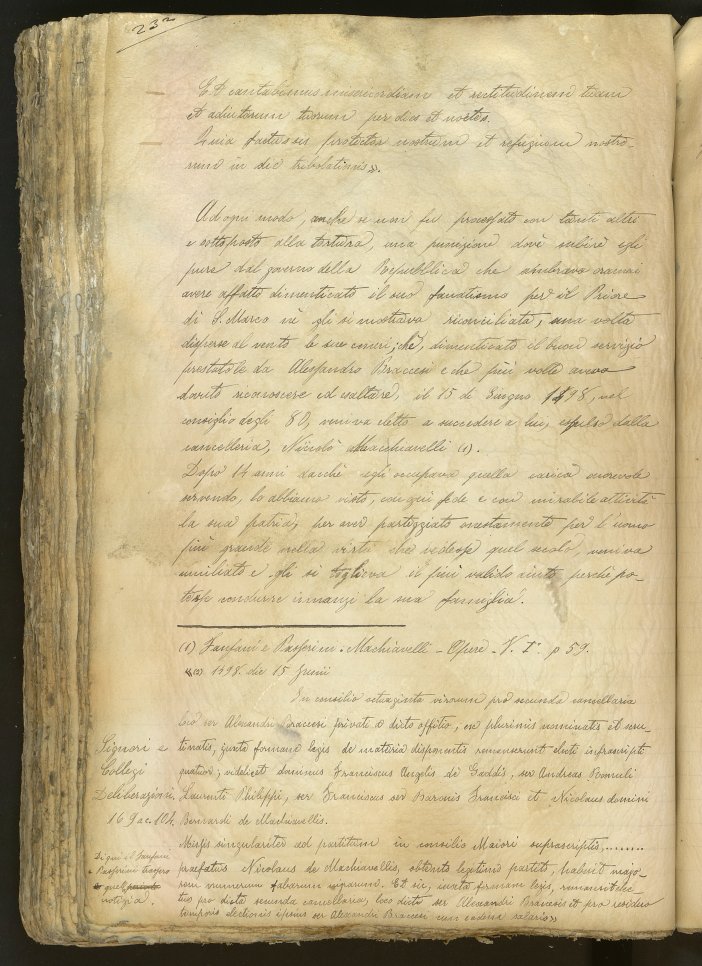 232
Et cantabimus misericordiam et rectitudinem tuam
et adiutorium tuum per dies et noctes.
Quia factus sis protector nostrum et refugium nostro-
rum in die tribolationis».
Ad ogni modo, anche se non fu processato con tanti altri
e sottoposto alla tortura, una punizione dové subire egli
pure dal governo della Repubblica che sembrava oramai
avere affatto dimenticato il suo fanatismo per il Priore
di S. Marco né gli si mostrava riconciliata, una volta
disperse al vento le sue ceneri; ché, dimenticato il buon servizio
prestatole da Alessandro Braccesi e che più volte aveva
dovuto riconoscere ed esaltare, il 15 di Giugno 1498, nel
consiglio degli 80, veniva eletto a succedere a lui, espulso dalla
cancelleria, Niccolò Macchiavelli (1).
Dopo 14 anni dacché egli occupava quella carica onorevole
servendo, lo abbiamo visto, con ogni fede e con mirabile attività
la sua patria, per aver parteggiato onestamente per l'uomo
più grande nella virtù che vedesse quel secolo, veniva
umiliato e gli si toglieva il più valido aiuto perché po-
tesse condurre innanzi la sua famiglia.
(1) Fanfani e Passerini - Machiavelli - Opere - V. I° p 59.
«(2) 1498. die 15 Junii
In consilio octuaginta virorum pro secunda cancellaria
loco ser Alexandri Braccesi privati a dicto offitio, ex pluribus nominatis et scru-
tinatis, juxta formam legis de materia disponentis remanserunt electi infrascripti
quatuor; videlicet dominus Franciscus Angeli de Gaddis, ser Andreas Romuli
Laurenti Philippi, ser Franciscus ser Baronis Francisci et Nicolaus domini
Bernardi de Machiavellis.
Missis singulariter ad partitum in consilio Maiori suprascriptis,........
praefatus Nicolaus de Machiavellis, obtento legitimo partito, habuit majo-
rem numerum fabarum nigrarum. Et sic, juxta formam legis, remansit elec-
tus pro dicta secunda cancellaria, loco dicti ser Alexandri Braccesis et pro residuo
temporis electionis ipsius ser Alexandri Braccesi cum eodem salario»
Signori e
Collegi
Deliberazioni,
169 a c. 104.
Di qui il Fanfani
e Passerini trassero
quel
notizia.